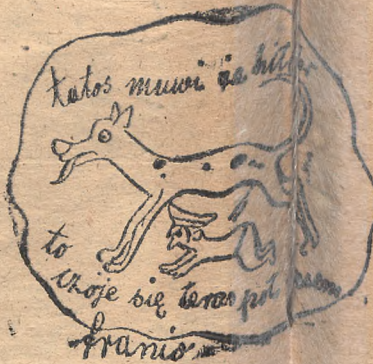 tatos muwi że hitler
to
czoje się teras pot psem
franio